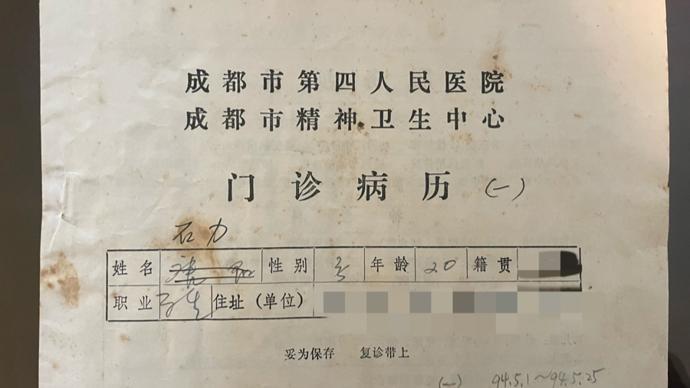 成都市第四人民医院
成都市精神卫生中心
门诊病历 (一)
石力
姓名 性别 年龄 20 籍贯
职业 学生 住址(单位)
妥为保存 复诊带上
(一) 94.5.1~94.5.25